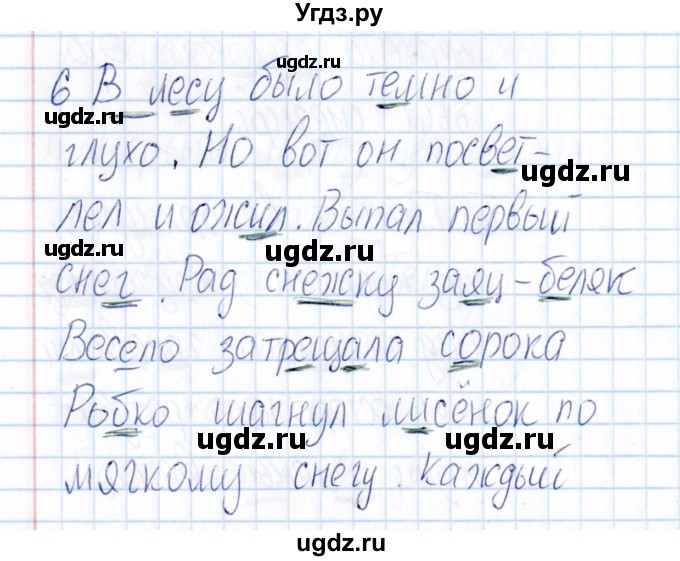 Угдз.ру
ugdz.ru
6 В лесу было темно и
ugdz.ru
глухо. Но вот он посвет-
ugdz.ru
лел и ожил. Выпал первый
ugdz.ru
ugdz.ru
снег. Рад снежку заяц-беляк
ugdz.ru
ugdz.ru
Весело затрещала сорока
ugdz.ru
Робко шагнул лисёнок по
ugdz.ru
ugdz.ru
мягкому снегу. Каждый
ugdz.ru
ugdz.ru